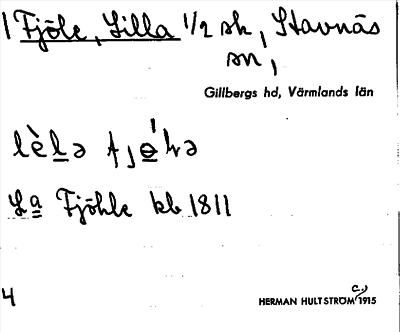 1 Fjöle, Lilla 1/2 sk, Stavnäs
sn,
Gillbergs hd, Värmlands län
La Fjöhle kb 1811
4
HERMAN HULTSTRÖM c.) 1915